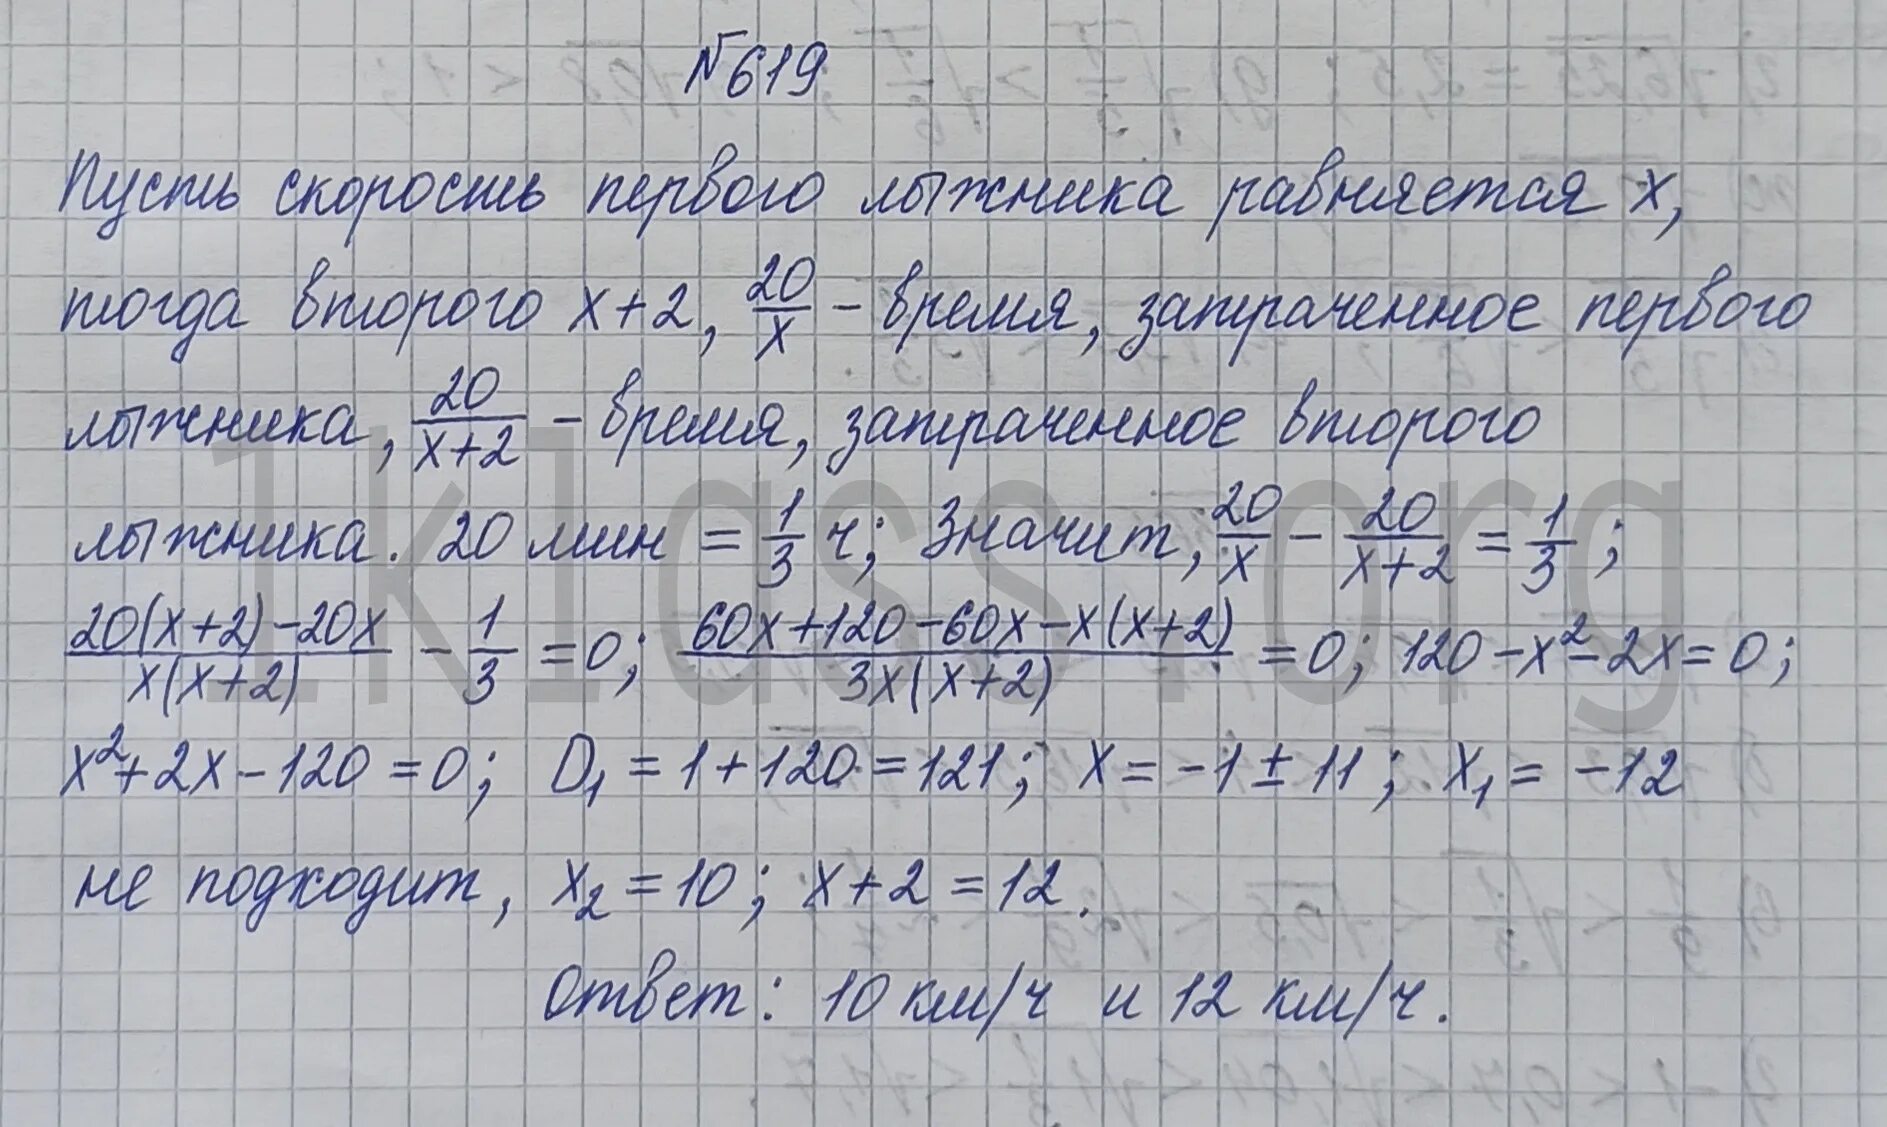 №619
Пусть скорость первого лыжника равняется x,
тогда второго x+2, 20/x - время, затраченное первого
лыжника, 20/(x+2) - время, затраченное второго
лыжника. 20 мин = 1/3 ч; Значит, 20/x - 20/(x+2) = 1/3;
(20(x+2)-20x)/(x(x+2)) - 1/3 = 0; (60x+120-60x-x(x+2))/(3x(x+2)) = 0; 120-x²-2x=0;
x²+2x-120=0; D₁=1+120=121; x=-1±11; x₁=-12
не подходит, x₂=10; x+2=12.
Ответ: 10 км/ч и 12 км/ч.
1klass.org